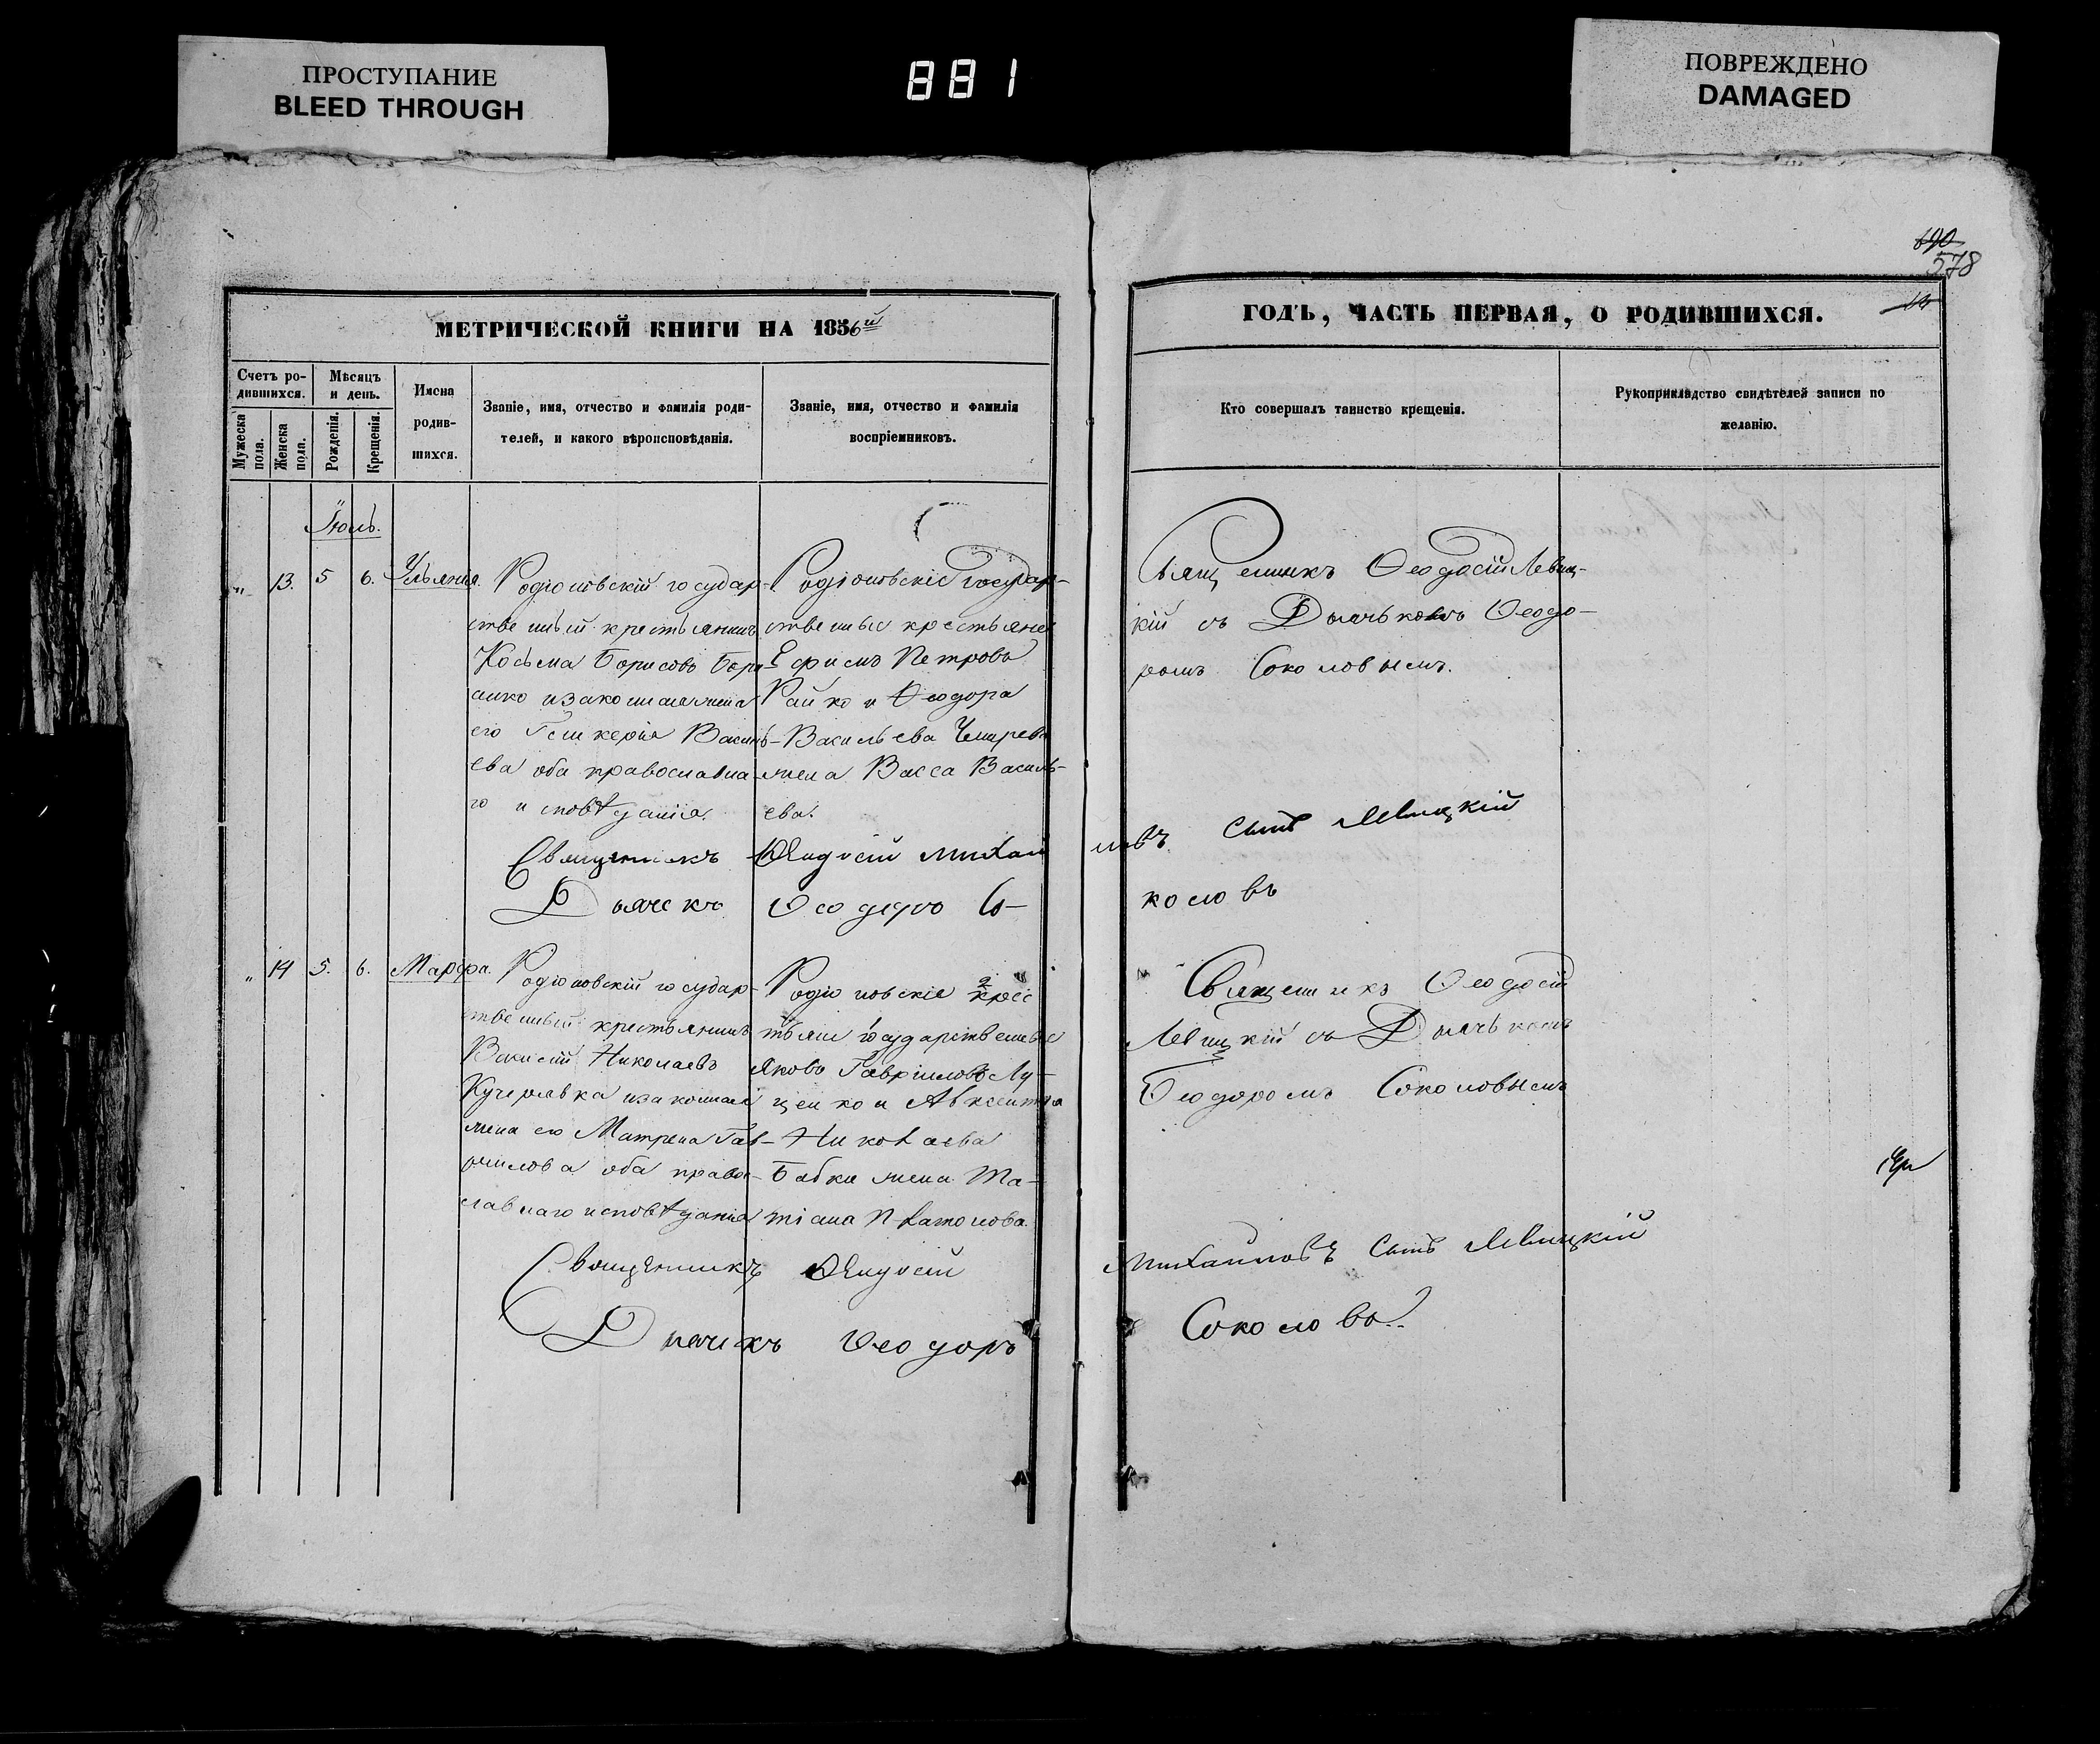 ПРОСТУПАНИЕ
BLEED THROUGH
881
ПОВРЕЖДЕНО
DAMAGED
690
578
МЕТРИЧЕСКОЙ КНИГИ НА 1856й
Счетъ ро-
дившихся.
Мужеска
пола.
Женска
пола.
Мѣсяцъ
и день.
Рожденія.
Крещенія.
Имена
родив-
шихся.
Званіе, имя, отчество и фамилія роди-
телей, и какого вѣроисповѣданія.
Званіе, имя, отчество и фамилія
воспріемниковъ.
ГОДЪ, ЧАСТЬ ПЕРВАЯ, О РОДИВШИХСЯ.
Кто совершалъ таинство крещенія.
Рукоприкладство свидѣтелей записи по
желанію.
Іюль.
" 13. 5 6. Ульянія.
Родіоновскій государ-
ственный крестьянинъ
Косьма Борисовъ
и законная жена
его Гликерія Василь-
ева оба православна-
го исповѣданія.
Родіоновскіе государ-
ственные крестьяне
Ефимъ Петровъ
Райко и Ѳеодора
Васильева
жена Васса Василь-
ева.
Священникъ Ѳеодосій Левиц-
кій съ Дьячькомъ Ѳеодо-
ромъ Соколовымъ.
Священникъ Ѳеодосій Михайловъ Сынъ Левицкій
Дьячекъ Ѳеодоръ Соколовъ
" 14 5. 6. Марфа.
Родіоновскій государ-
ственный крестьянинъ
Василій Николаевъ
Кучерявка и законная
жена его Матрена Гав-
рилова оба право-
славнаго исповѣданія
Родіоновскіе крес
тьяне государственные
Яковъ Гавріиловъ Лу-
ценко и Авксентія
Николаева
Бабки жена Та-
тіана Платонова.
Священникъ Ѳеодосій
Левицкій съ Дьячькомъ
Ѳеодоромъ Соколовымъ
Священникъ Ѳеодосій Михайловъ Сынъ Левицкій
Дьячекъ Ѳеодоръ Соколовъ.